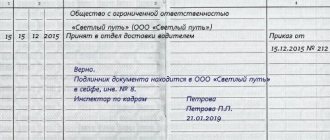 1 2 3 4
Общество с ограниченной ответственностью
«Светлый путь» (ООО «Светлый путь»)
15 15 12 2015 Принят в отдел доставки водителем Приказ от
15.12.2015 № 212
Верно.
Подлинник документа находится в ООО «Светлый путь»
в сейфе, инв. № 8.
Инспектор по кадрам Петрова
Петрова П.П.
21.01.2019